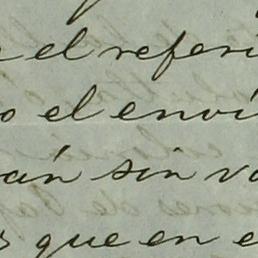 el referi
o el enví
án sin va
s que en e